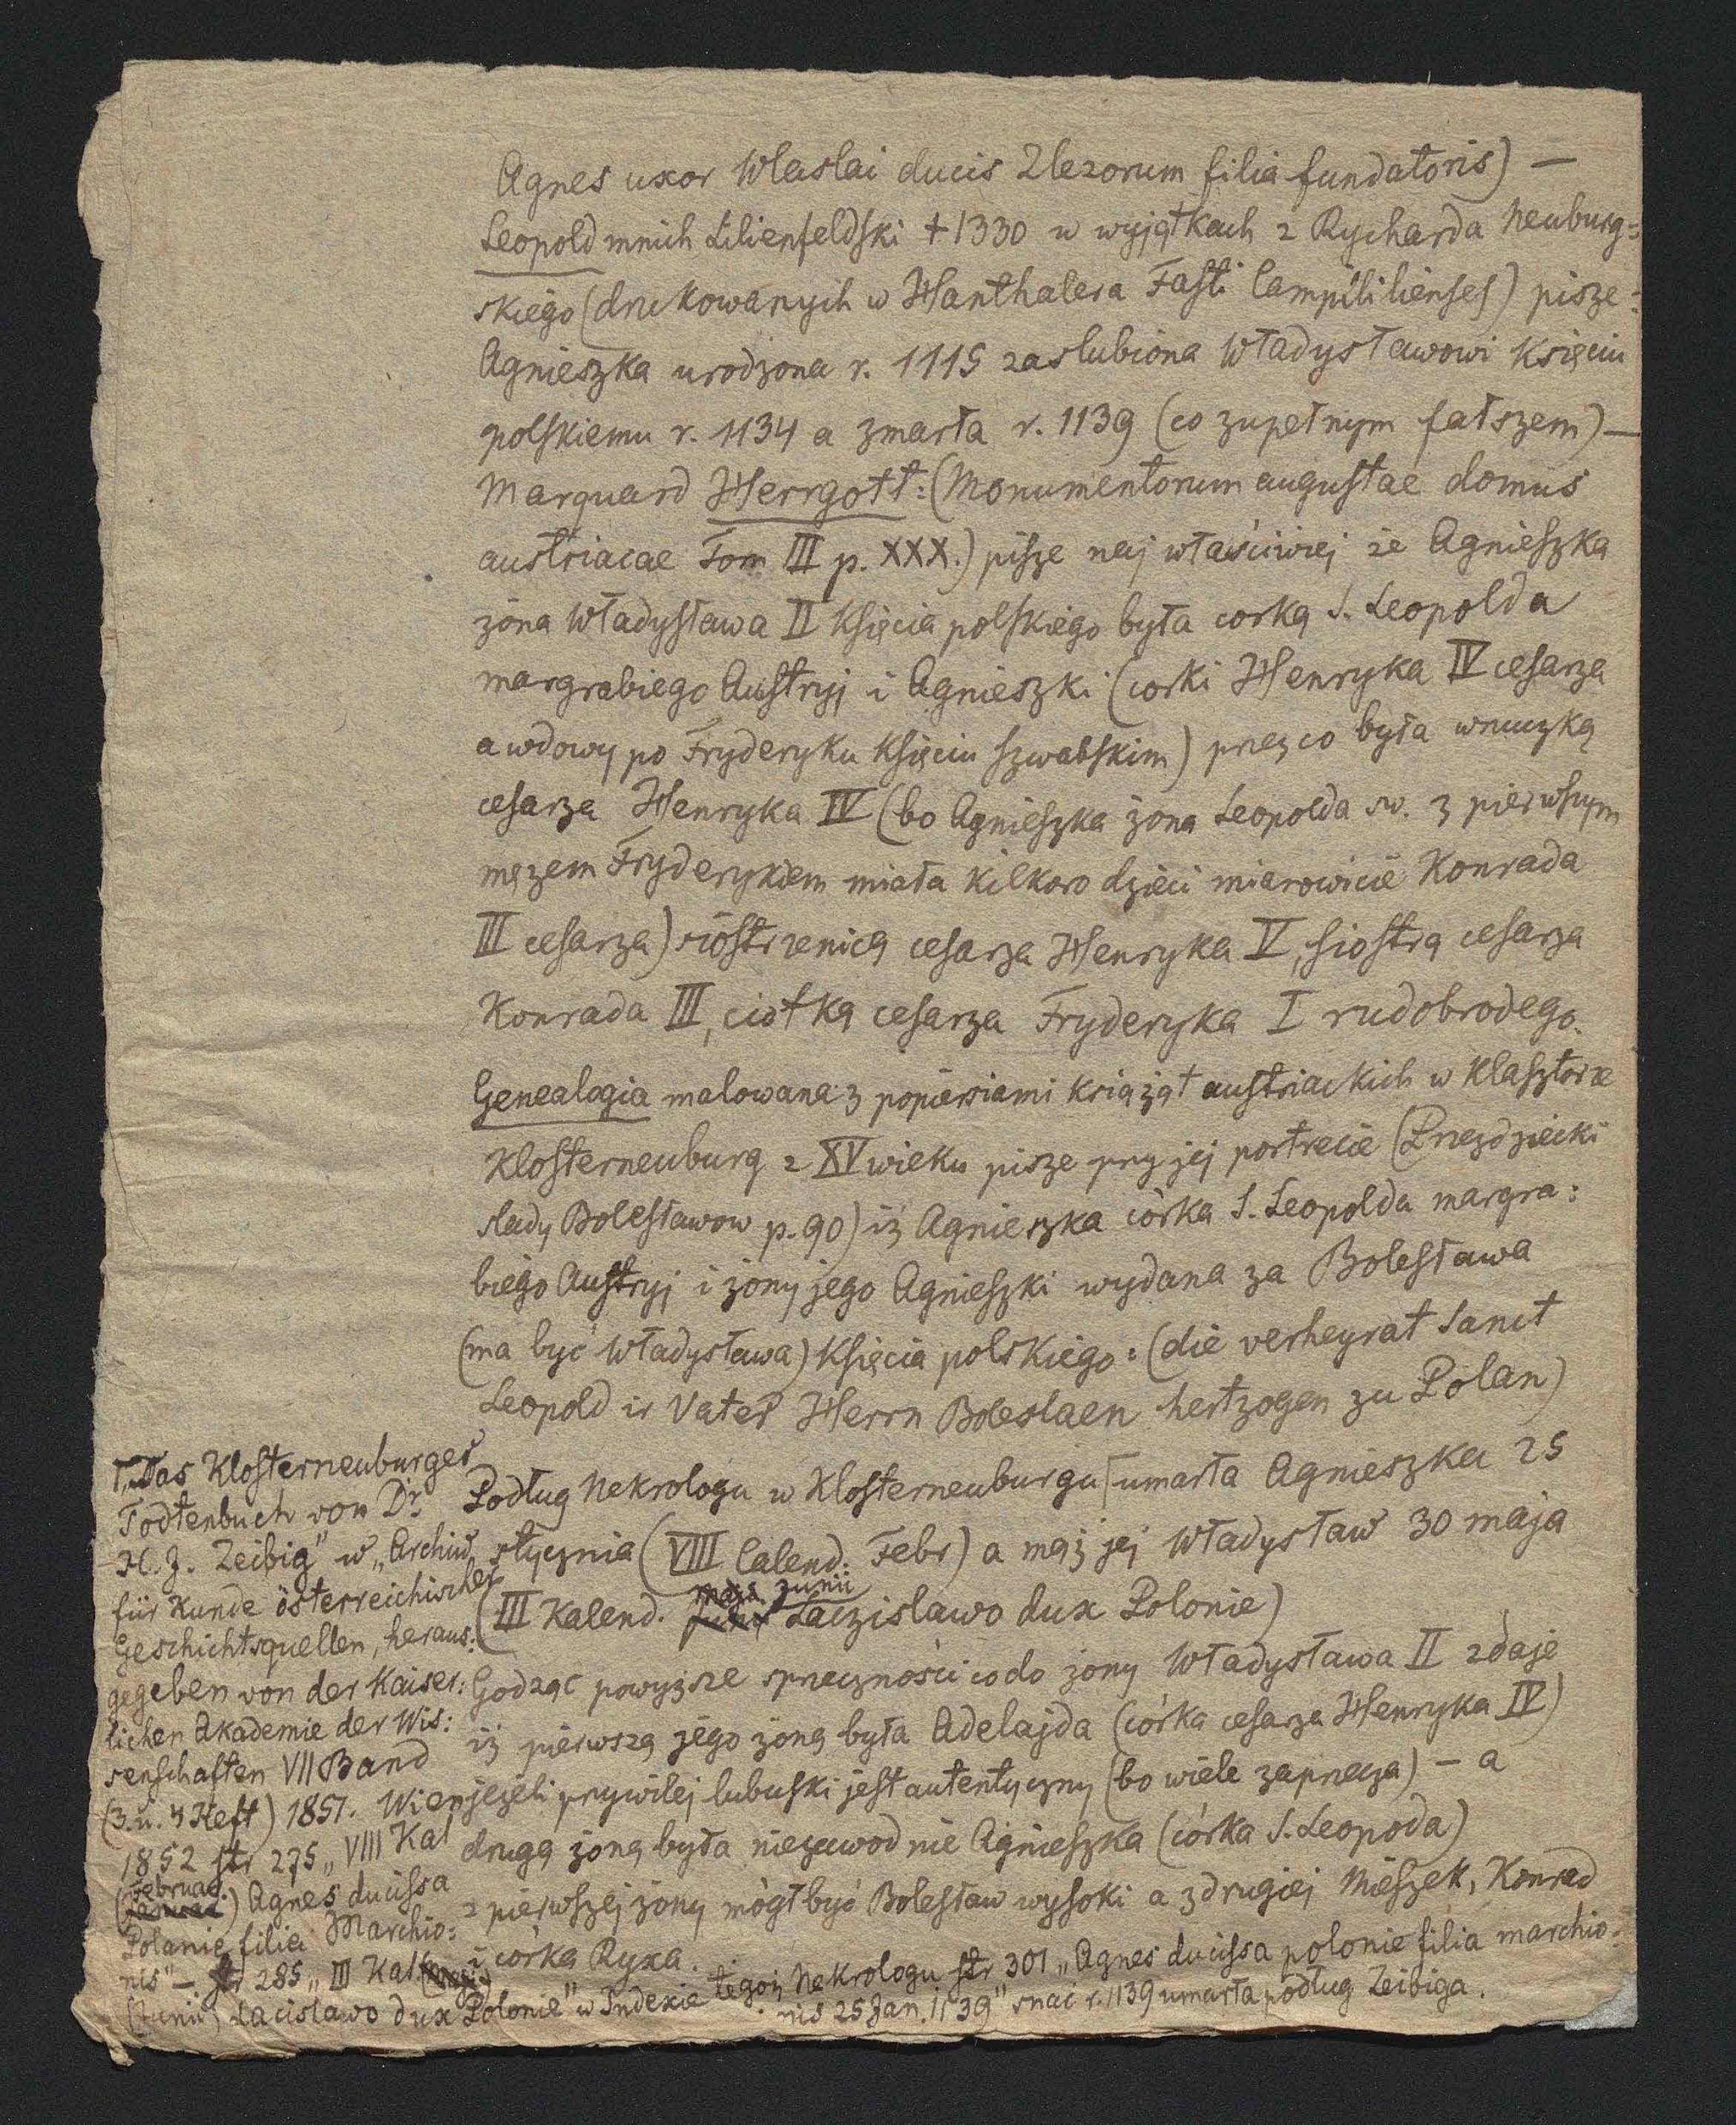 Agnes uxor Wlaslai ducis Zlezorum filia fundatoris) —
Leopold mnich Lilienfeldski + 1330 w wyjątkach z Rycharda Neuburg=
skiego (drukowanych w Hanthalera Fasti Campililienses) pisze:
Agnieszka urodzona r. 1115 zaslubiona Władysławowi Księciu
polskiemu r. 1134 a zmarła r. 1139 (co zupełnym fałszem) —
Marquard Herrgott: (Monumentorum augustae domus
austriacae Tom III p. XXX.) pisze najwłaściwiej że Agnieszka
żona Władysława II Księcia polskiego była corką S. Leopolda
margrabiego Austryj i Agnieszki (corki Henryka IV cesarza
a wdowy po Fryderyku Księciu szwabskim) przezco była wnuczką
cesarza Henryka IV (bo Agnieszka żona Leopolda sw. z pierwszym
mężem Fryderykiem miała kilkoro dzieci mianowicie Konrada
III cesarza) siostrzenicą cesarza Henryka V, siostrą cesarza
Konrada III, ciotką cesarza Fryderyka I rudobrodego.
Genealogia malowana z popiersiami książąt austriackich w Klasztorze
Klosterneuburg z XV wieku pisze przy jej portrecie (Przezdziecki
slady Bolesławow p. 90) iż Agnieszka córka S. Leopolda margra:
biego Austryj i żony jego Agnieszki wydana za Bolesława
(ma być Władysława) Księcia polskiego: (die verheyrat Sanct
Leopold ir Vater Herrn Boleslaen hertzogen zu Polan)
Podług Nekrologu w Klosterneuburgu ⌈ umarła Agnieszka 25
stycznia (VIII Calend. Febr) a mąż jej Władysław 30 maja
(III Kalend. Junii Laczislawo dux Polonie)
Godząc powyższe sprzeczności codo żony Władysława II zdaje
iż pierwszą jego żoną była Adelajda (córka cesarza Henryka IV)
jeżeli przywilej lubuski jest autentyczny (bo wiele zaprzecza) — a
drugą żoną była niezawodnie Agnieszka (córka S. Leopoda)
z pierwszej żony mógł być Bolesław wysoki a z drugiej Mieszek, Konrad
i córka Ryxa.
⌈ „Das Klosterneuburger
Todtenbuch von Dr.
H. J. Zeibig" w „Archiv
für Kunde österreichischer
Geschichtsquellen, heraus:
gegeben von der Kaiser:
lichen Akademie der Wis:
senschaften VII Band
(3. u. 4 Heft) 1851. Wien
1852 str 275 „VIII Kal
(Februar.) Agnes ducissa
Polanie filia Marchio:
nis" — str 285 „III Kal
(Junii) Lacislawo dux Polonie" w Indexie tegoż Nekrologu str 301 „Agnes ducissa polonie filia marchio:
nis 25 Jan. 1139" snać r. 1139 umarła podług Zeibiga.